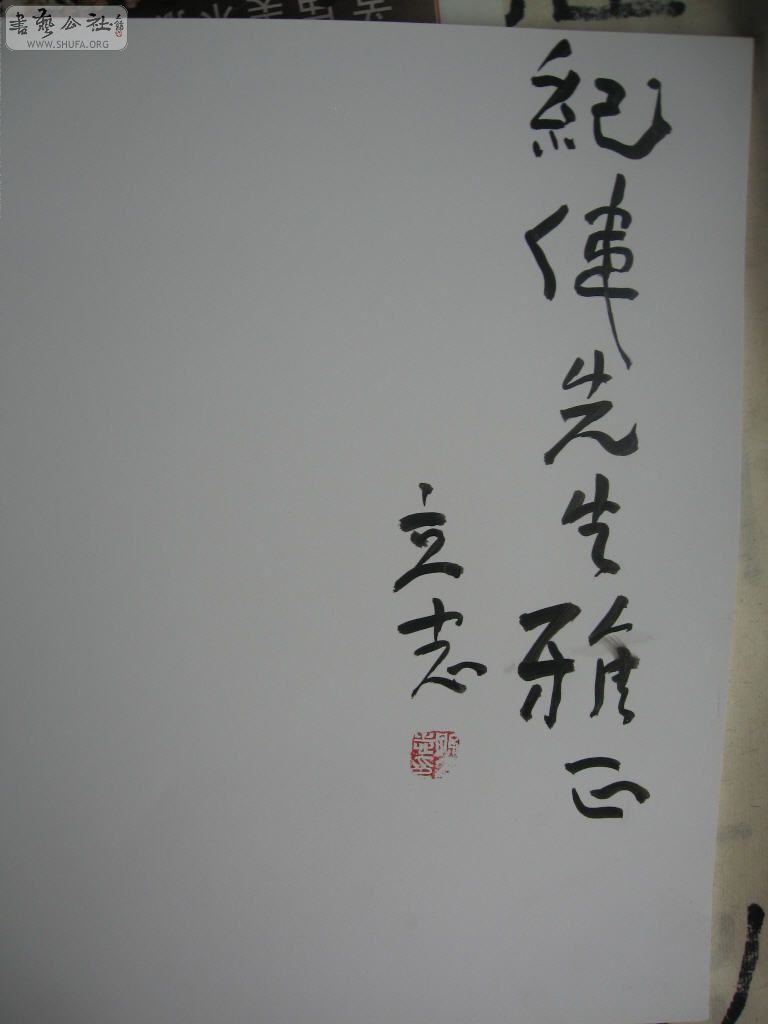 紀偉先生雅正
立志
書藝公社
WWW.SHUFA.ORG